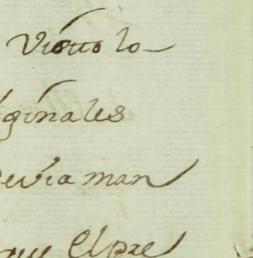 Visto lo
ginales
evia man
que el pre